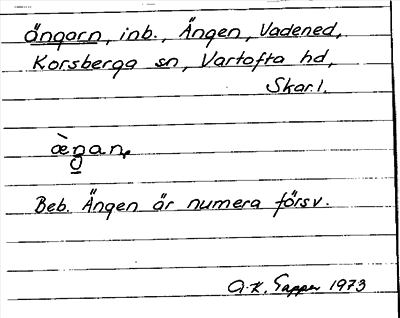 ängarn, inb., Ängen, Vadened,
Korsberga sn, Vartofta hd,
Skar.l.
æ̀ŋan,
Beb. Ängen är numera försv.
G.K. Tapper 1973